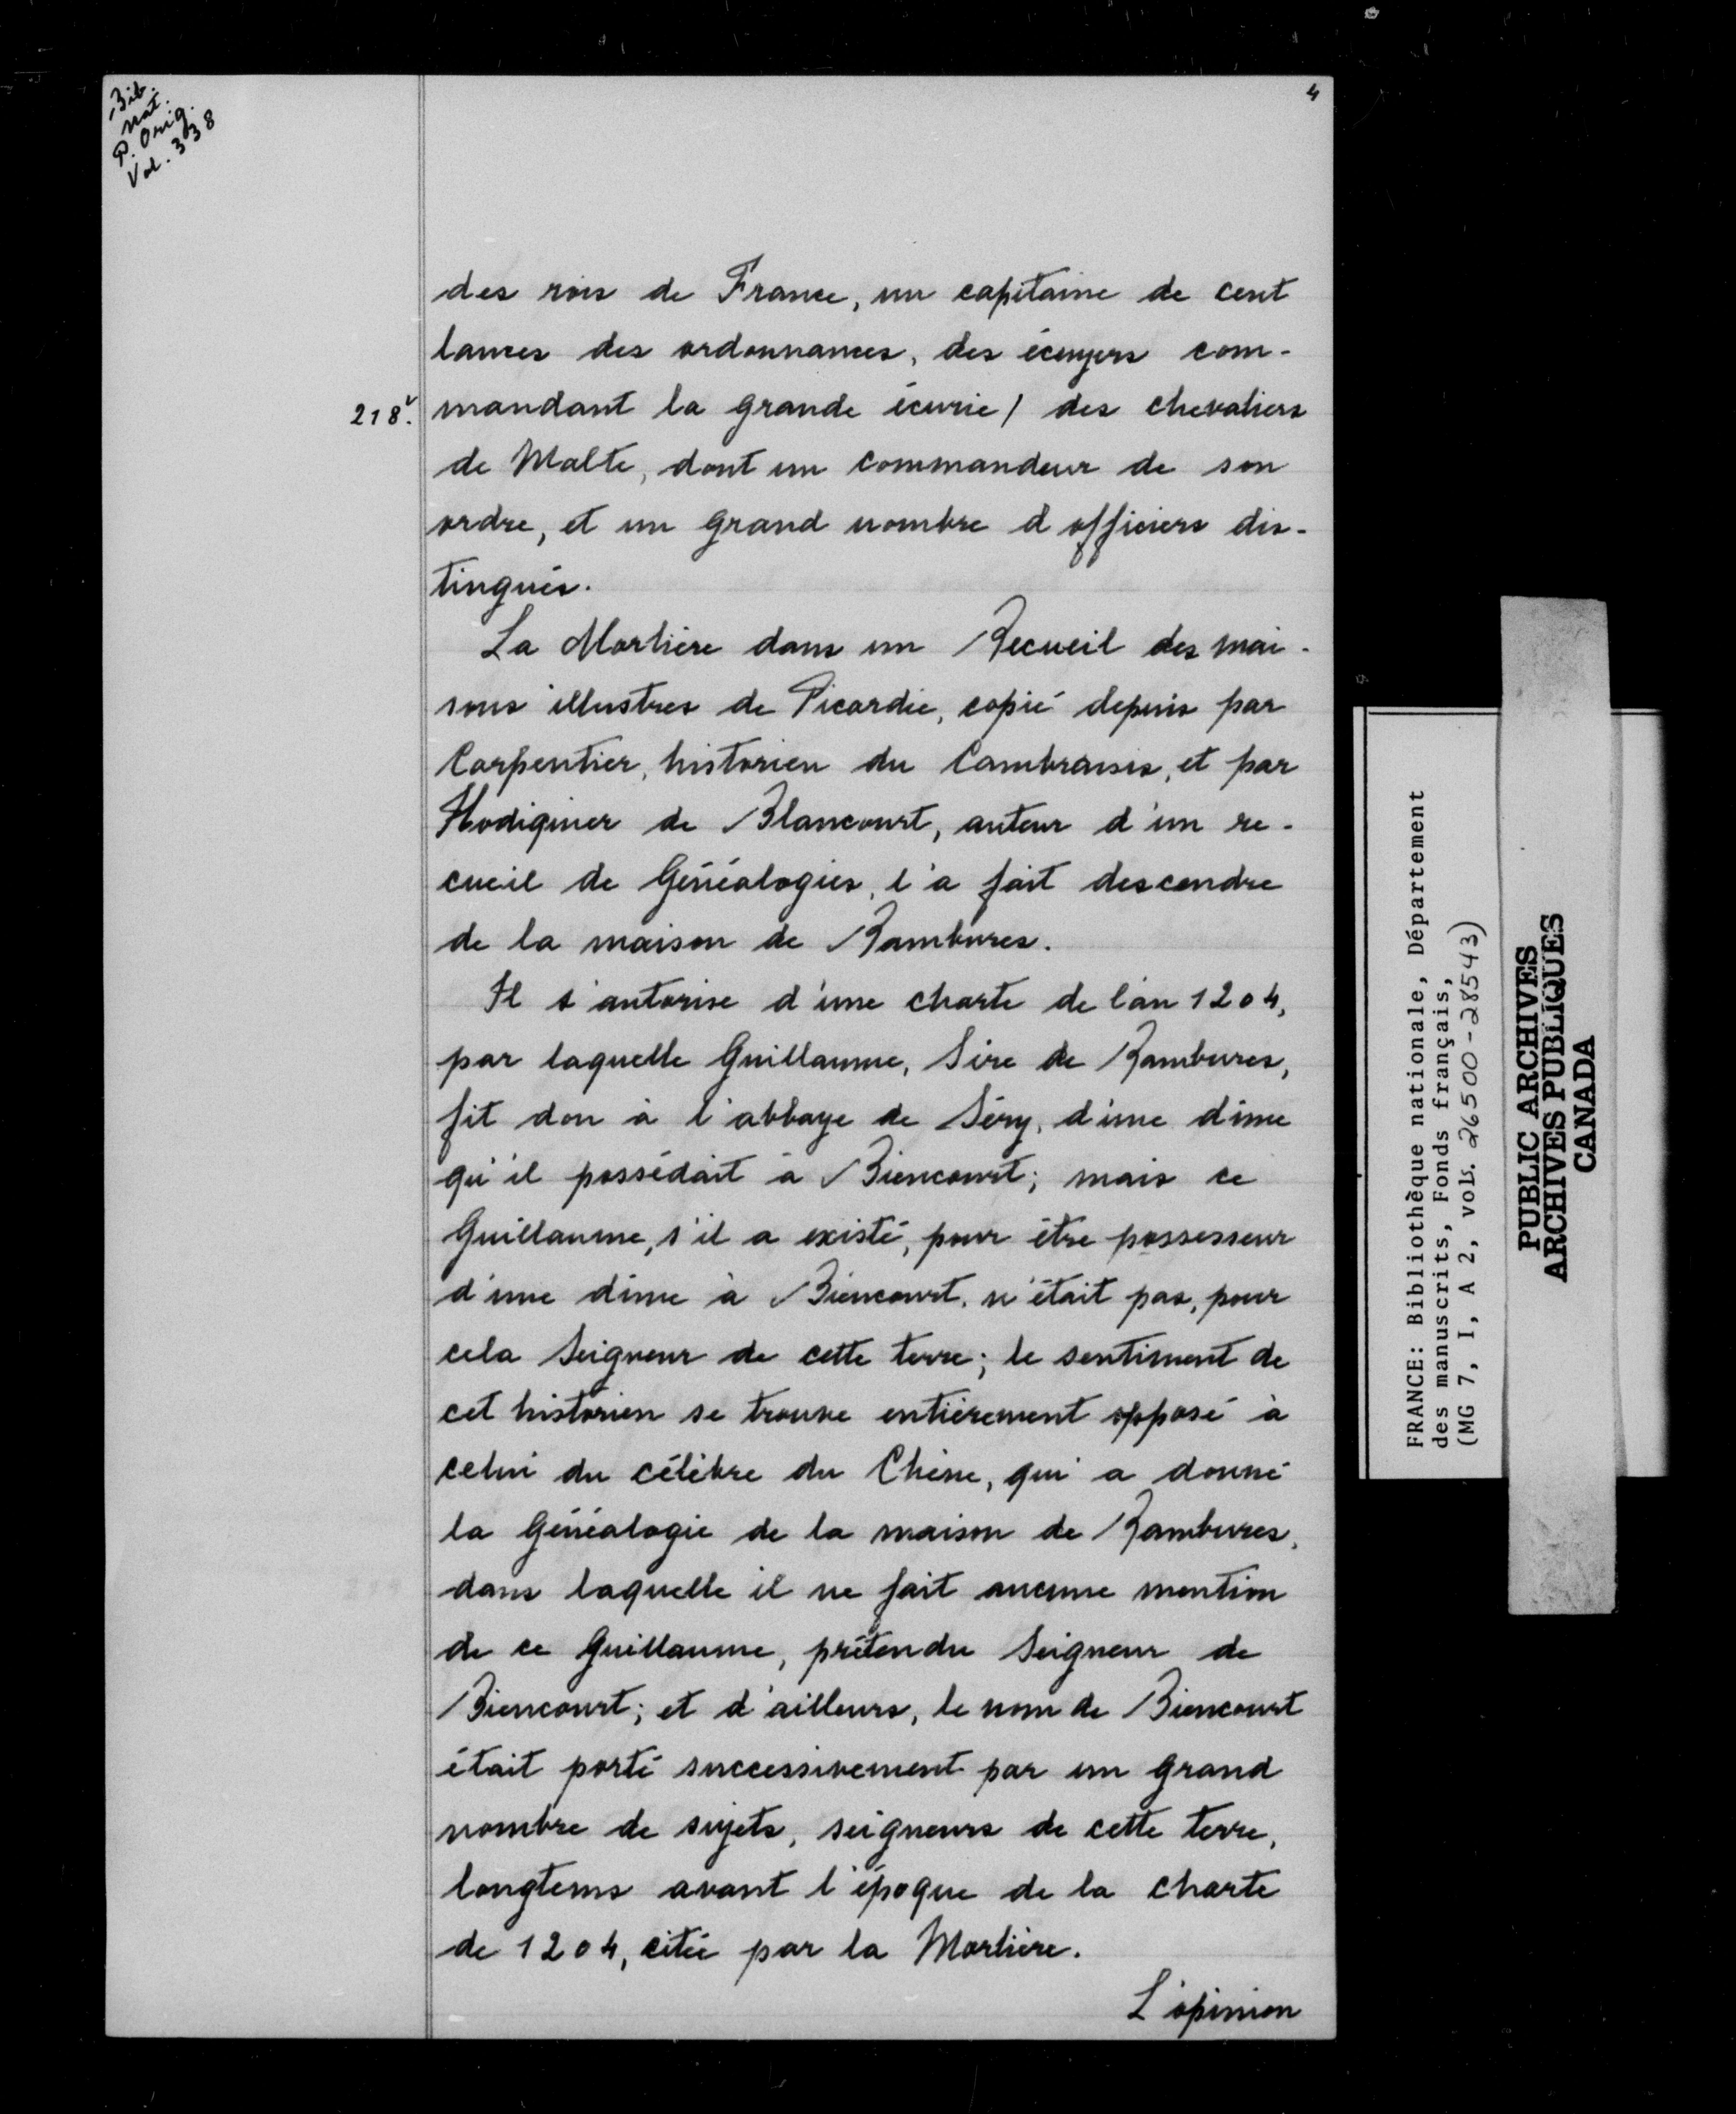 Bib.
nat.
P. Orig.
Vol. 338
4
des rois de France, un capitaine de cent
lances des ordonnances, des écuyers com-
218v. mandant la grande écurie / des chevaliers
de Malte, dont un commandeur de son
ordre, et un grand nombre d'officiers dis-
tingués.
La Morlière dans un Recueil des mai-
sons illustres de Picardie, copié depuis par
Carpentier, historien du Cambraisis, et par
Hodiquer de Blancourt, auteur d'un re-
cueil de Généalogies, l'a fait descendre
de la maison de Rambures.
Il s'autorise d'une charte de l'an 1204,
par laquelle Guillaume, Sire de Rambures,
fit don à l'abbaye de Séry, d'une dime
qu'il possédait à Biencourt; mais ce
Guillaume, s'il a existé, pour être possesseur
d'une dime à Biencourt, n'était pas, pour
cela Seigneur de cette terre; le sentiment de
cet historien se trouve entièrement opposé à
celui du célèbre du Chêne, qui a donné
la Généalogie de la maison de Rambures,
dans laquelle il ne fait aucune mention
de ce Guillaume, prétendu Seigneur de
Biencourt; et d'ailleurs, le nom de Biencourt
était porté successivement par un grand
nombre de sujets, seigneurs de cette terre,
longtems avant l'époque de la charte
de 1204, citée par la Morlière.
L'opinion
FRANCE: Bibliothèque nationale, Département
des manuscrits, Fonds français,
(MG 7, I, A 2, vols. 26500-28543)
PUBLIC ARCHIVES
ARCHIVES PUBLIQUES
CANADA